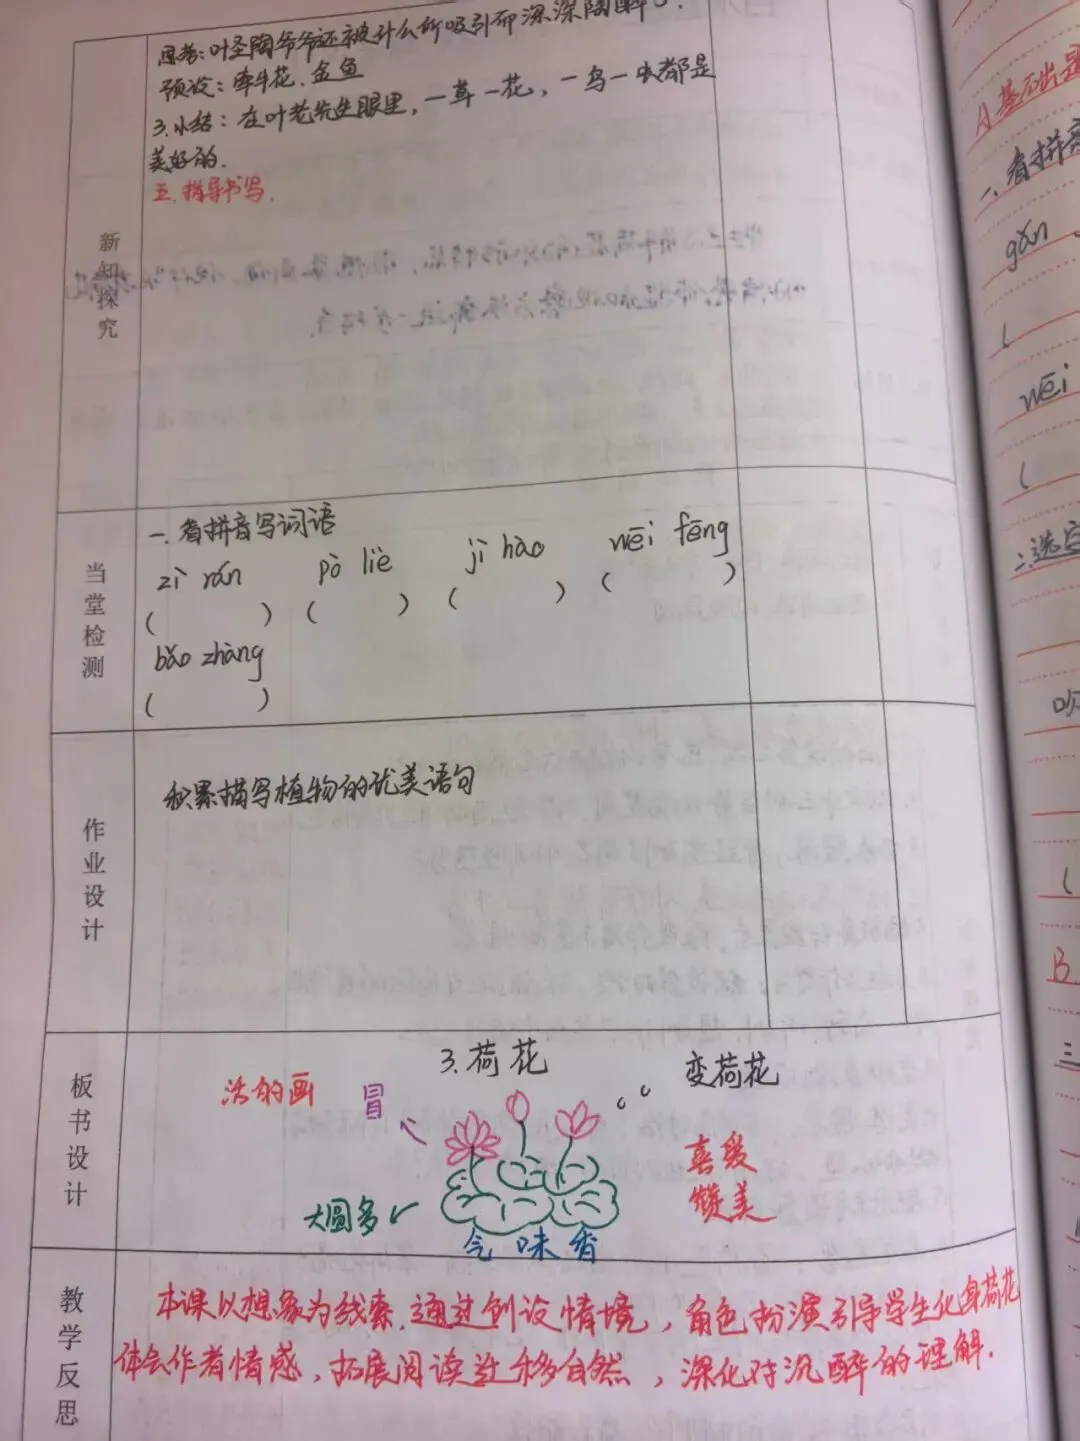 思考：叶圣陶爷爷还被什么所吸引而深深陶醉？
预设：牵牛花、金鱼
3.小结：在叶老先生眼里，一草一花，一鸟一虫都是
美好的.
五、指导书写.
新知探究
当堂检测
一.看拼音写词语
zì rán pò liè jì hào wēi fēng
( ) ( ) ( ) ( )
bǎo zhàng
( )
作业设计
积累描写植物的优美语句
板书设计
3.荷花
活的画 冒 变荷花
喜爱
赞美
大圆多
气味香
教学反思
本课以想象为线索，通过创设情境，角色扮演引导学生化身荷花
体会作者情感，拓展阅读迁移自然，深化对沉醉的理解.
A基础题
一、看拼音
gǎn
(
wēi
(
二.选
(
B.
三